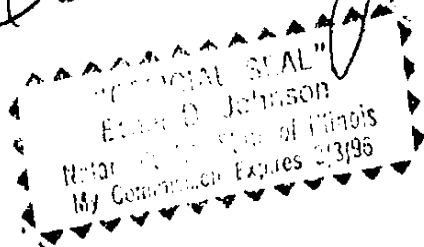 "OFFICIAL SEAL"
Johnson
Notary Public, State of Illinois
My Commission Expires 3/96